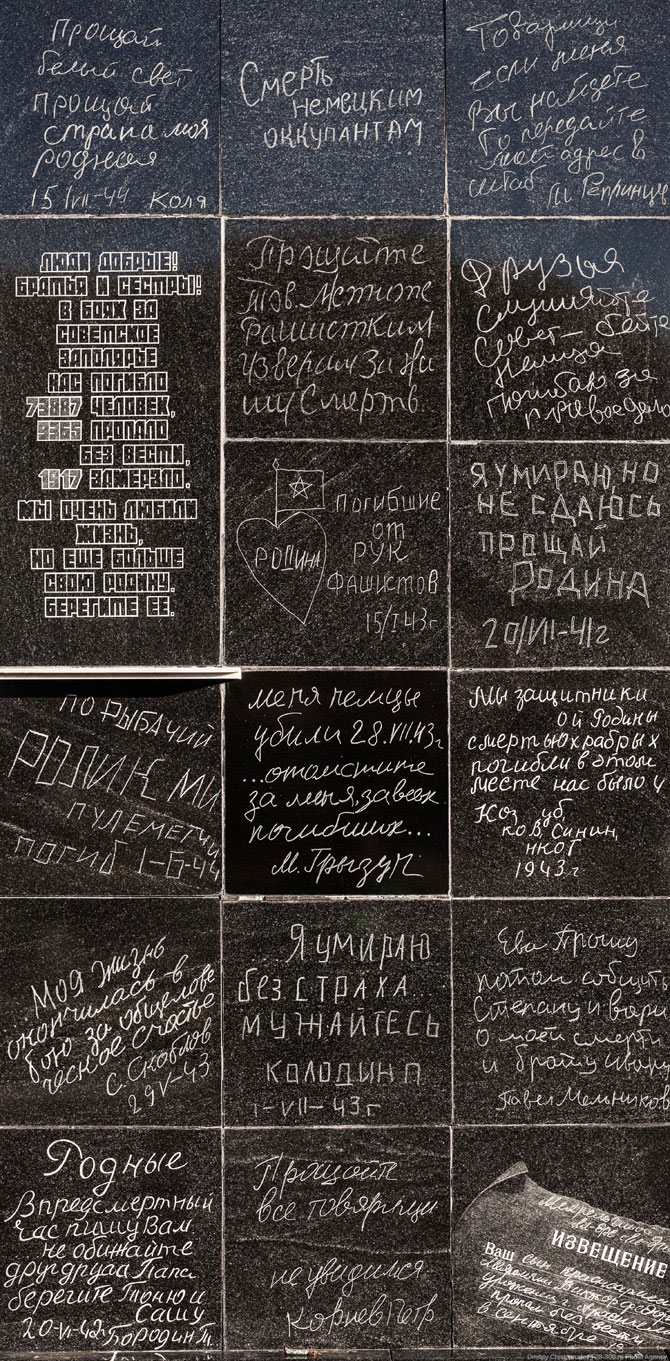 Прощай
белый свет
прощай
страна моя
родная
15/VII-44 Коля
Смерть
немецким
оккупантам
Товарищи
если меня
Вы найдете
То передайте
мой адрес в
штаб Репринцев
ЛЮДИ ДОБРЫЕ!
БРАТЬЯ И СЕСТРЫ!
В БОЯХ ЗА
СОВЕТСКОЕ
ЗАПОЛЯРЬЕ
НАС ПОГИБЛО
73887 ЧЕЛОВЕК,
9365 ПРОПАЛО
БЕЗ ВЕСТИ,
1917 ЗАМЕРЗЛО.
МЫ ОЧЕНЬ ЛЮБИЛИ
ЖИЗНЬ,
НО ЕЩЕ БОЛЬШЕ
СВОЮ РОДИНУ.
БЕРЕГИТЕ ЕЕ.
Прощайте
тов. Мстите
Фашистким
Извергам За на
шу Смерть.
Друзья
Слушайте
Совет - бейте
немцев
Погибаю за
правое дело
РОДИНА
Погибшие
от
РУК
Фашистов
15/I 43г
Я УМИРАЮ, НО
НЕ СДАЮСЬ
ПРОЩАЙ
РОДИНА
20/VII-41г
П-О РЫБАЧИЙ
РОЛИК МИ
ПУЛЕМЕТЧИ
ПОГИБ 1-6-44
меня немцы
убили 28.VII.43г
...отомстите
за меня, за всех
погибших...
М. Грызун
Мы защитники
ой Родины
смертью храбрых
погибли в этом
месте нас было 4
Коз уб
ко В, Синин,
нког
1943г
...Моя жизнь
окончилась в
бою за общелове
ческое счастье
С. Скоблов
29 V-43
...Я умираю
без страха...
мужайтесь
Колодин П
1-VII-43г
Ева Прошу
потом сообщить
Степану и Вари
о моей смерти
и брату Ивану
Павел Мельников
Родные
В предсмертный
час пишу Вам
не обижайте
друг друга Папа
берегите Тоню и
Сашу
20-VI-42г Бородин Т
Прощайте
все товарищи
не увидился
Корнев Петр
ИЗВЕЩЕНИЕ
Ваш сын красноармеец
уроженец
пропал без вести
в сентябре